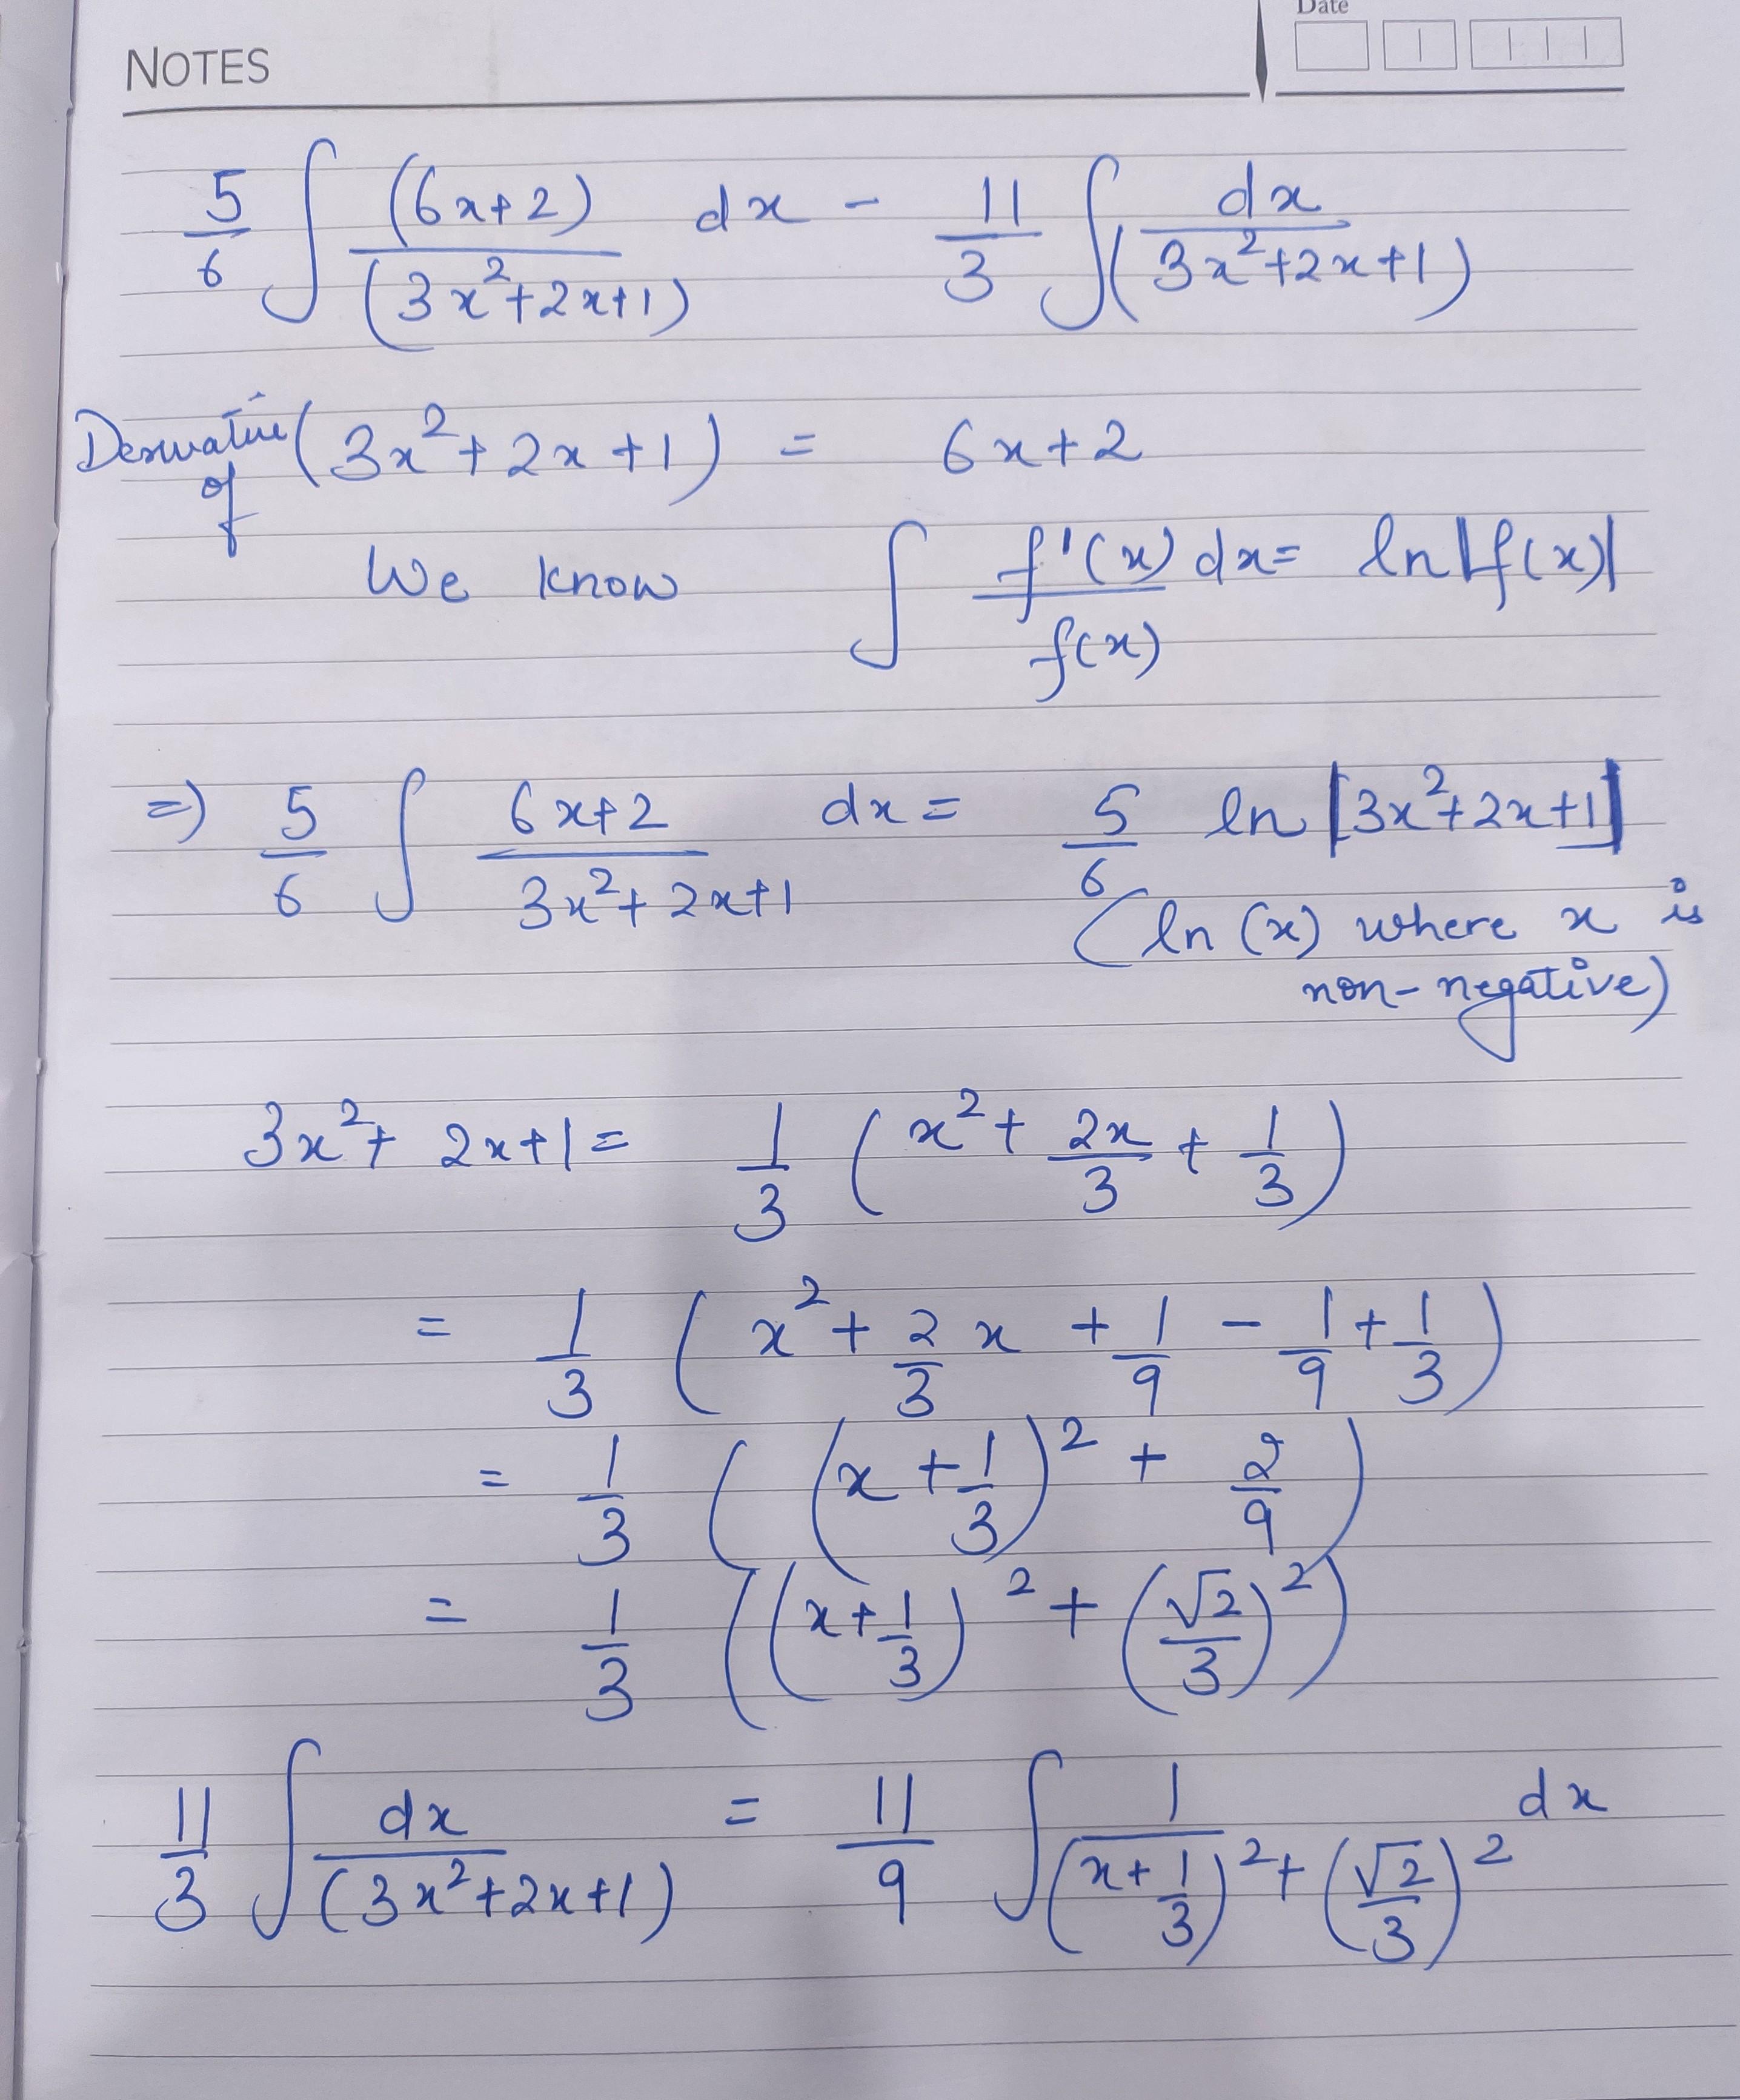 Date
NOTES
5/6 ∫ (6x+2)/(3x²+2x+1) dx - 11/3 ∫ dx/(3x²+2x+1)
Derivative of (3x²+2x+1) = 6x+2
We know ∫ f'(x)/f(x) dx = ln|f(x)|
=) 5/6 ∫ 6x+2/3x²+2x+1 dx = 5/6 ln |3x²+2x+1|
(ln (x) where x is
non-negative)
3x²+2x+1 = 1/3 (x² + 2x/3 + 1/3)
= 1/3 (x² + 2/3 x + 1/9 - 1/9 + 1/3)
= 1/3 ((x + 1/3)² + 2/9)
= 1/3 ((x + 1/3)² + (√2/3)²)
11/3 ∫ dx/(3x²+2x+1) = 11/9 ∫ 1/(x + 1/3)² + (√2/3)² dx